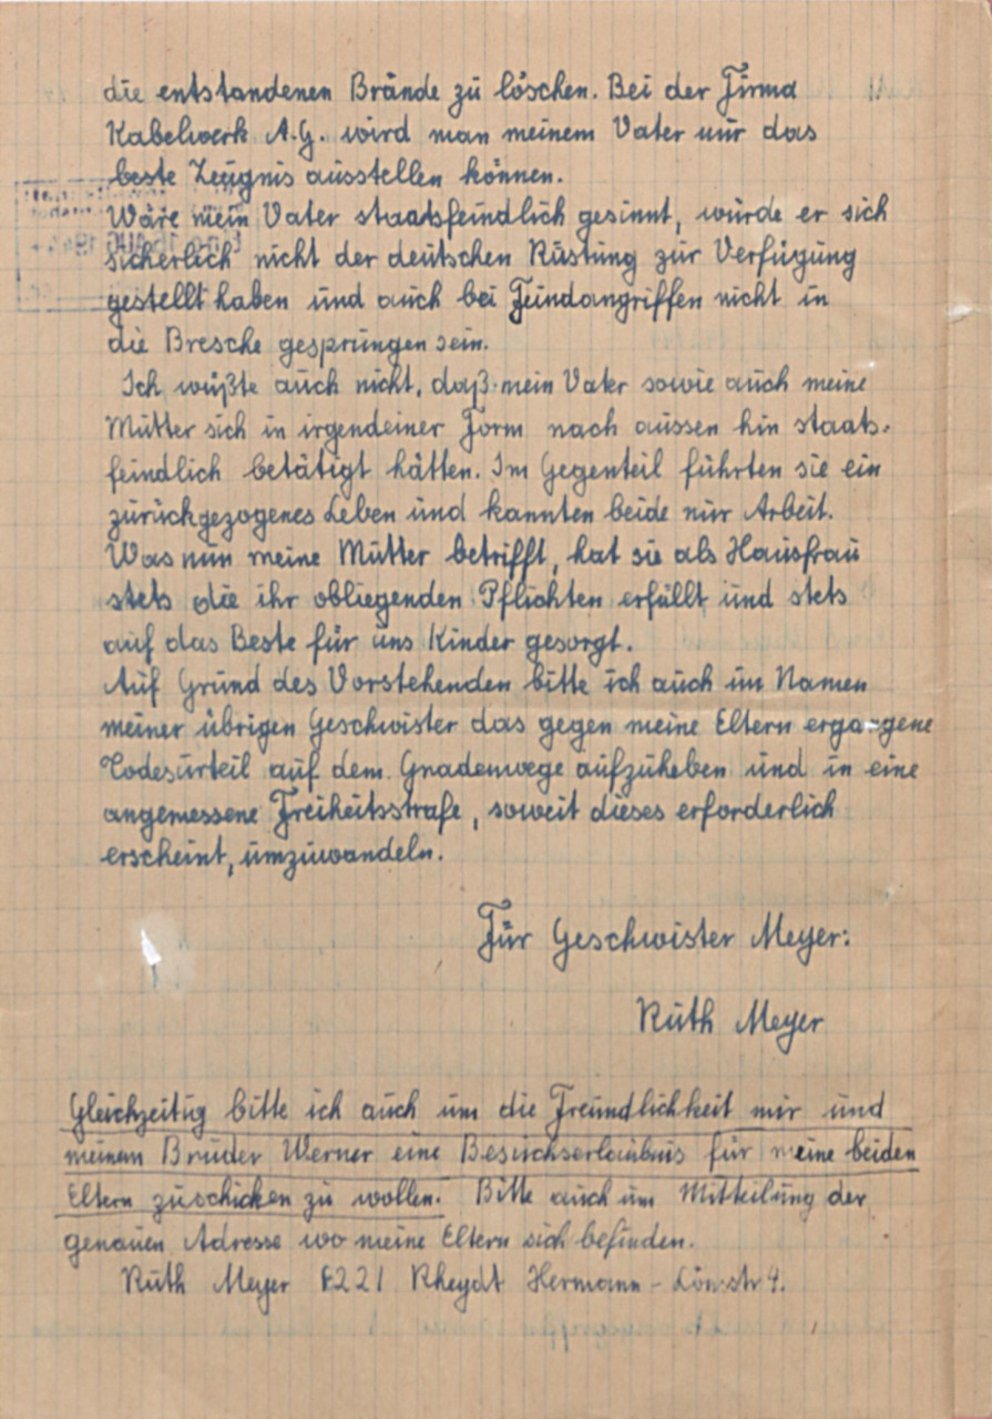 die entstandenen Brände zu löschen. Bei der Firma
Kabelwerk A.G. wird man meinem Vater nur das
beste Zeugnis ausstellen können.
Wäre mein Vater staatsfeindlich gesinnt, würde er sich
sicherlich nicht der deutschen Rüstung zur Verfügung
gestellt haben und auch bei Feindangriffen nicht in
die Bresche gesprungen sein.
Ich wüßte auch nicht, daß mein Vater sowie auch meine
Mutter sich in irgendeiner Form nach aussen hin staats-
feindlich betätigt hätten. Im Gegenteil führten sie ein
zurückgezogenes Leben und kannten beide nur Arbeit.
Was nun meine Mutter betrifft, hat sie als Hausfrau
stets die ihr obliegenden Pflichten erfüllt und stets
auf das Beste für uns Kinder gesorgt.
Auf Grund des Vorstehenden bitte ich auch im Namen
meiner übrigen Geschwister das gegen meine Eltern ergangene
Todesurteil auf dem Gnadenwege aufzuheben und in eine
angemessene Freiheitsstrafe, soweit dieses erforderlich
erscheint, umzuwandeln.
Für Geschwister Meyer:
Ruth Meyer
Gleichzeitig bitte ich auch um die Freundlichkeit mir und
meinem Bruder Werner eine Besuchserlaubnis für meine beiden
Eltern zuschicken zu wollen. Bitte auch um Mitteilung der
genauen Adresse wo meine Eltern sich befinden.
Ruth Meyer 221 Rheydt Hermann-Lönsstr 4.